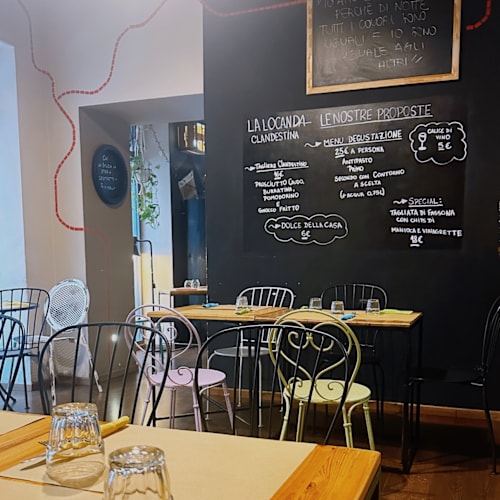 PERCHÉ DI NOTTE
TUTTI I COLORI SONO
UGUALI E IO SONO
UGUALE AGLI
ALTRI
LA LOCANDA
CLANDESTINA
LE NOSTRE PROPOSTE
MENU DEGUSTAZIONE
25€ A PERSONA
ANTIPASTO
PRIMO
SECONDO CON CONTORNO
A SCELTA
(+ACQUA 0,75L)
CALICE DI
VINO
5€
TAGLIERE CLANDESTINO
16€
PROSCIUTTO CRUDO,
BURRATINA,
POMODORINO E
GNOCCO FRITTO
DOLCE DELLA CASA
6€
SPECIAL:
TAGLIATA DI FASSONA
CON CHIPS DI
MANIOCA E VINAGRETTE
18€